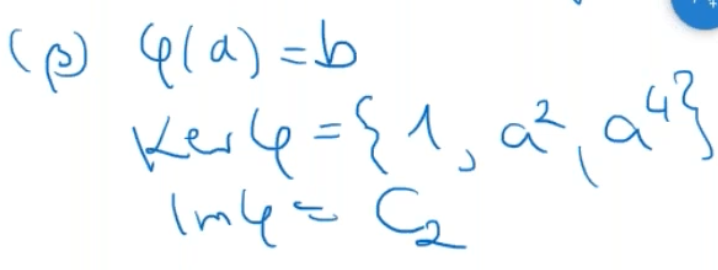 (β) φ(a) = b
Ker φ = {1, a², a⁴}
Im φ = C₂